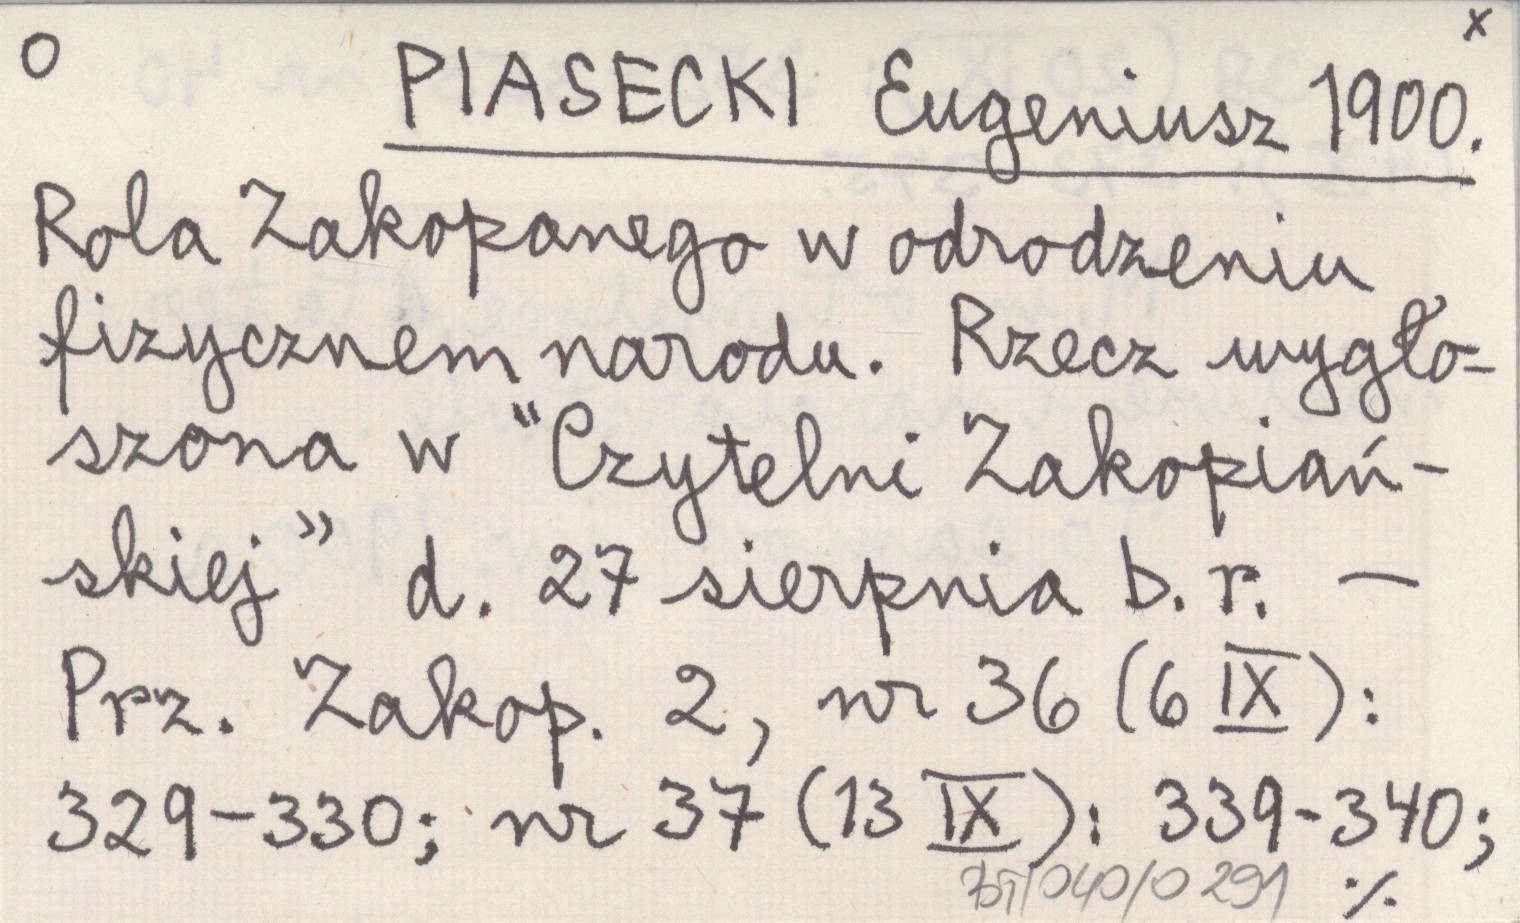 O x
PIASECKI Eugeniusz 1900.
Rola Zakopanego w odrodzeniu
fizycznem narodu. Rzecz wygło-
szona w "Czytelni Zakopiań-
skiej" d. 27 sierpnia b. r. —
Prz. Zakop. 2, nr 36 (6 IX):
329-330; nr 37 (13 IX): 339-340;
040/0291 ./.